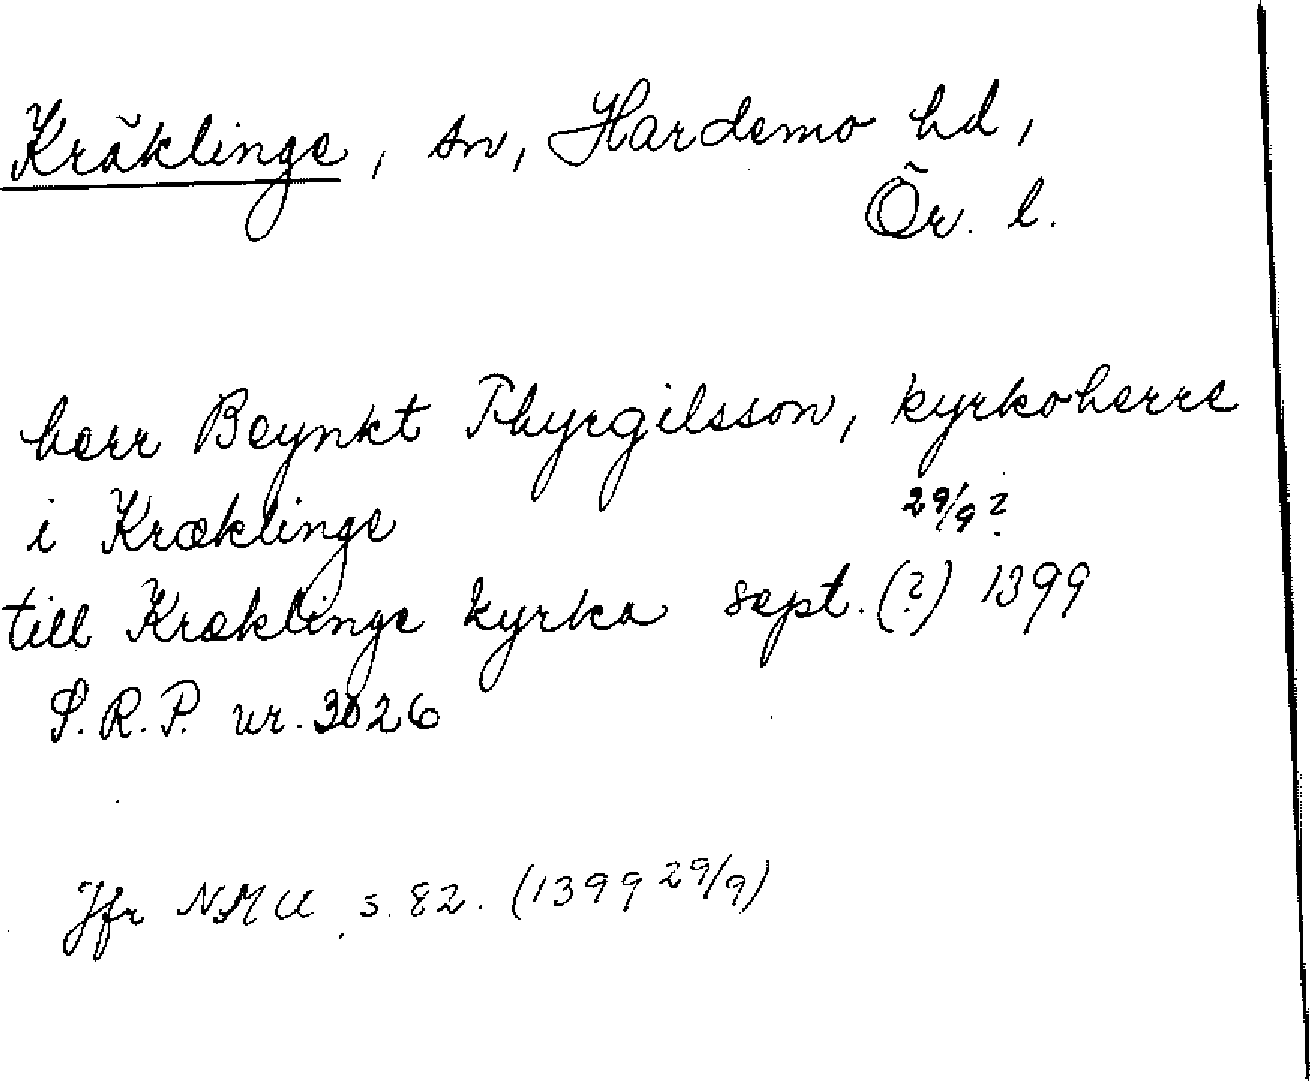 Kräklinge, sn, Hardemo hd,
Ör. l.
herr Beynkt Thyrgilsson, kyrkoherre
i Kræklinge
29/9 ?
till Kræklinge kyrka sept. (?) 1399
S.R.P. nr. 3026
Jfr NMU s. 82. (1399 29/9)